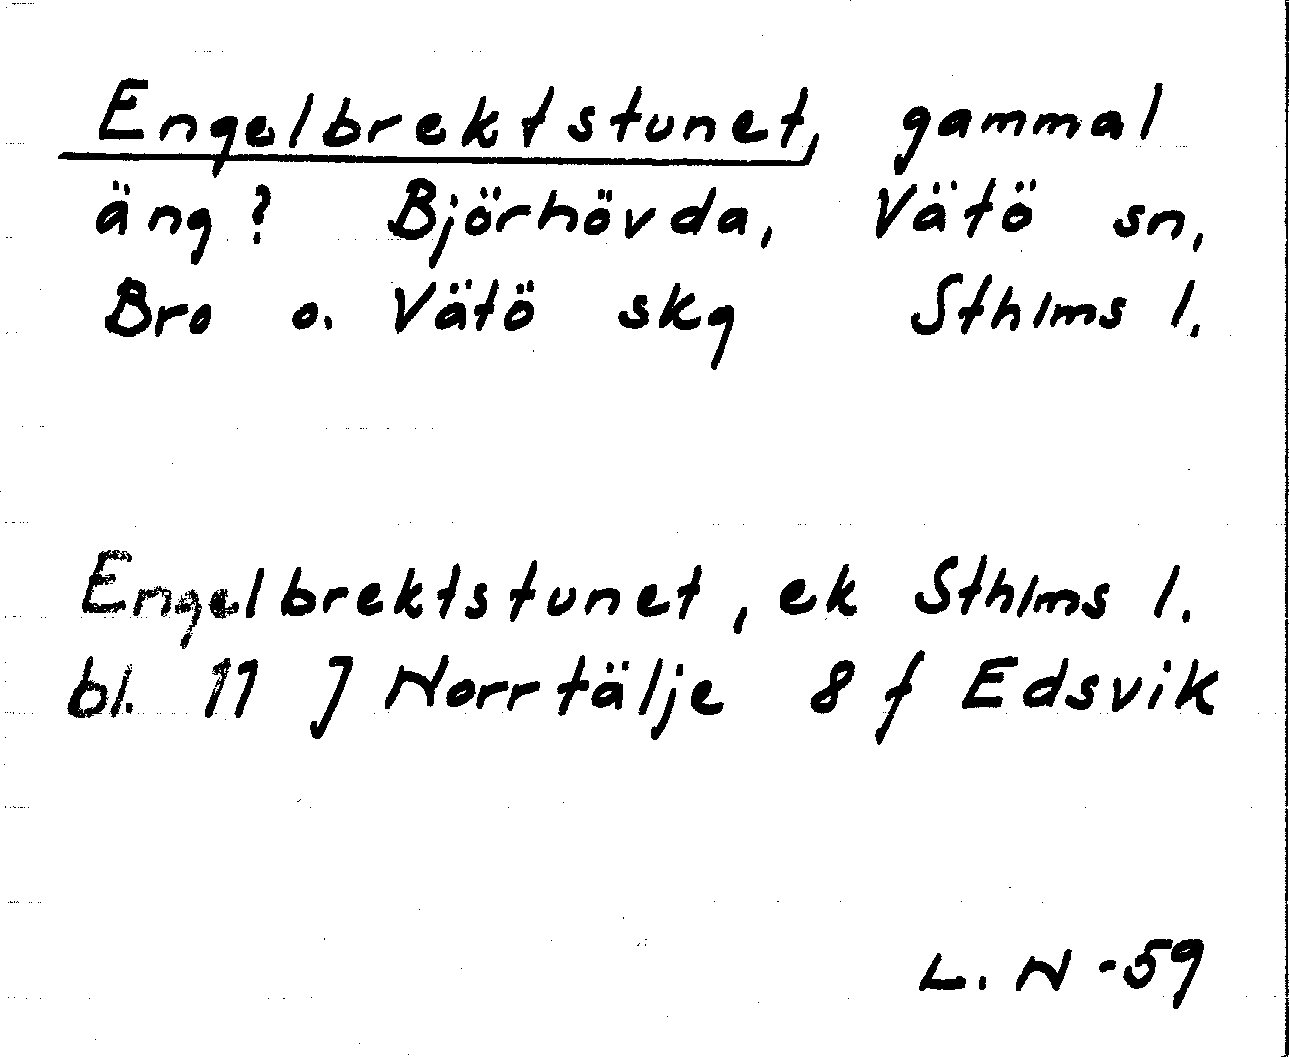 Engelbrektstunet, gammal
äng? Björhövda, Vätö sn,
Bro o. Vätö skg Sthlms l.
Engelbrektstunet, ek Sthlms l.
bl. 11 J Norrtälje 8 f Edsvik
L. N -59